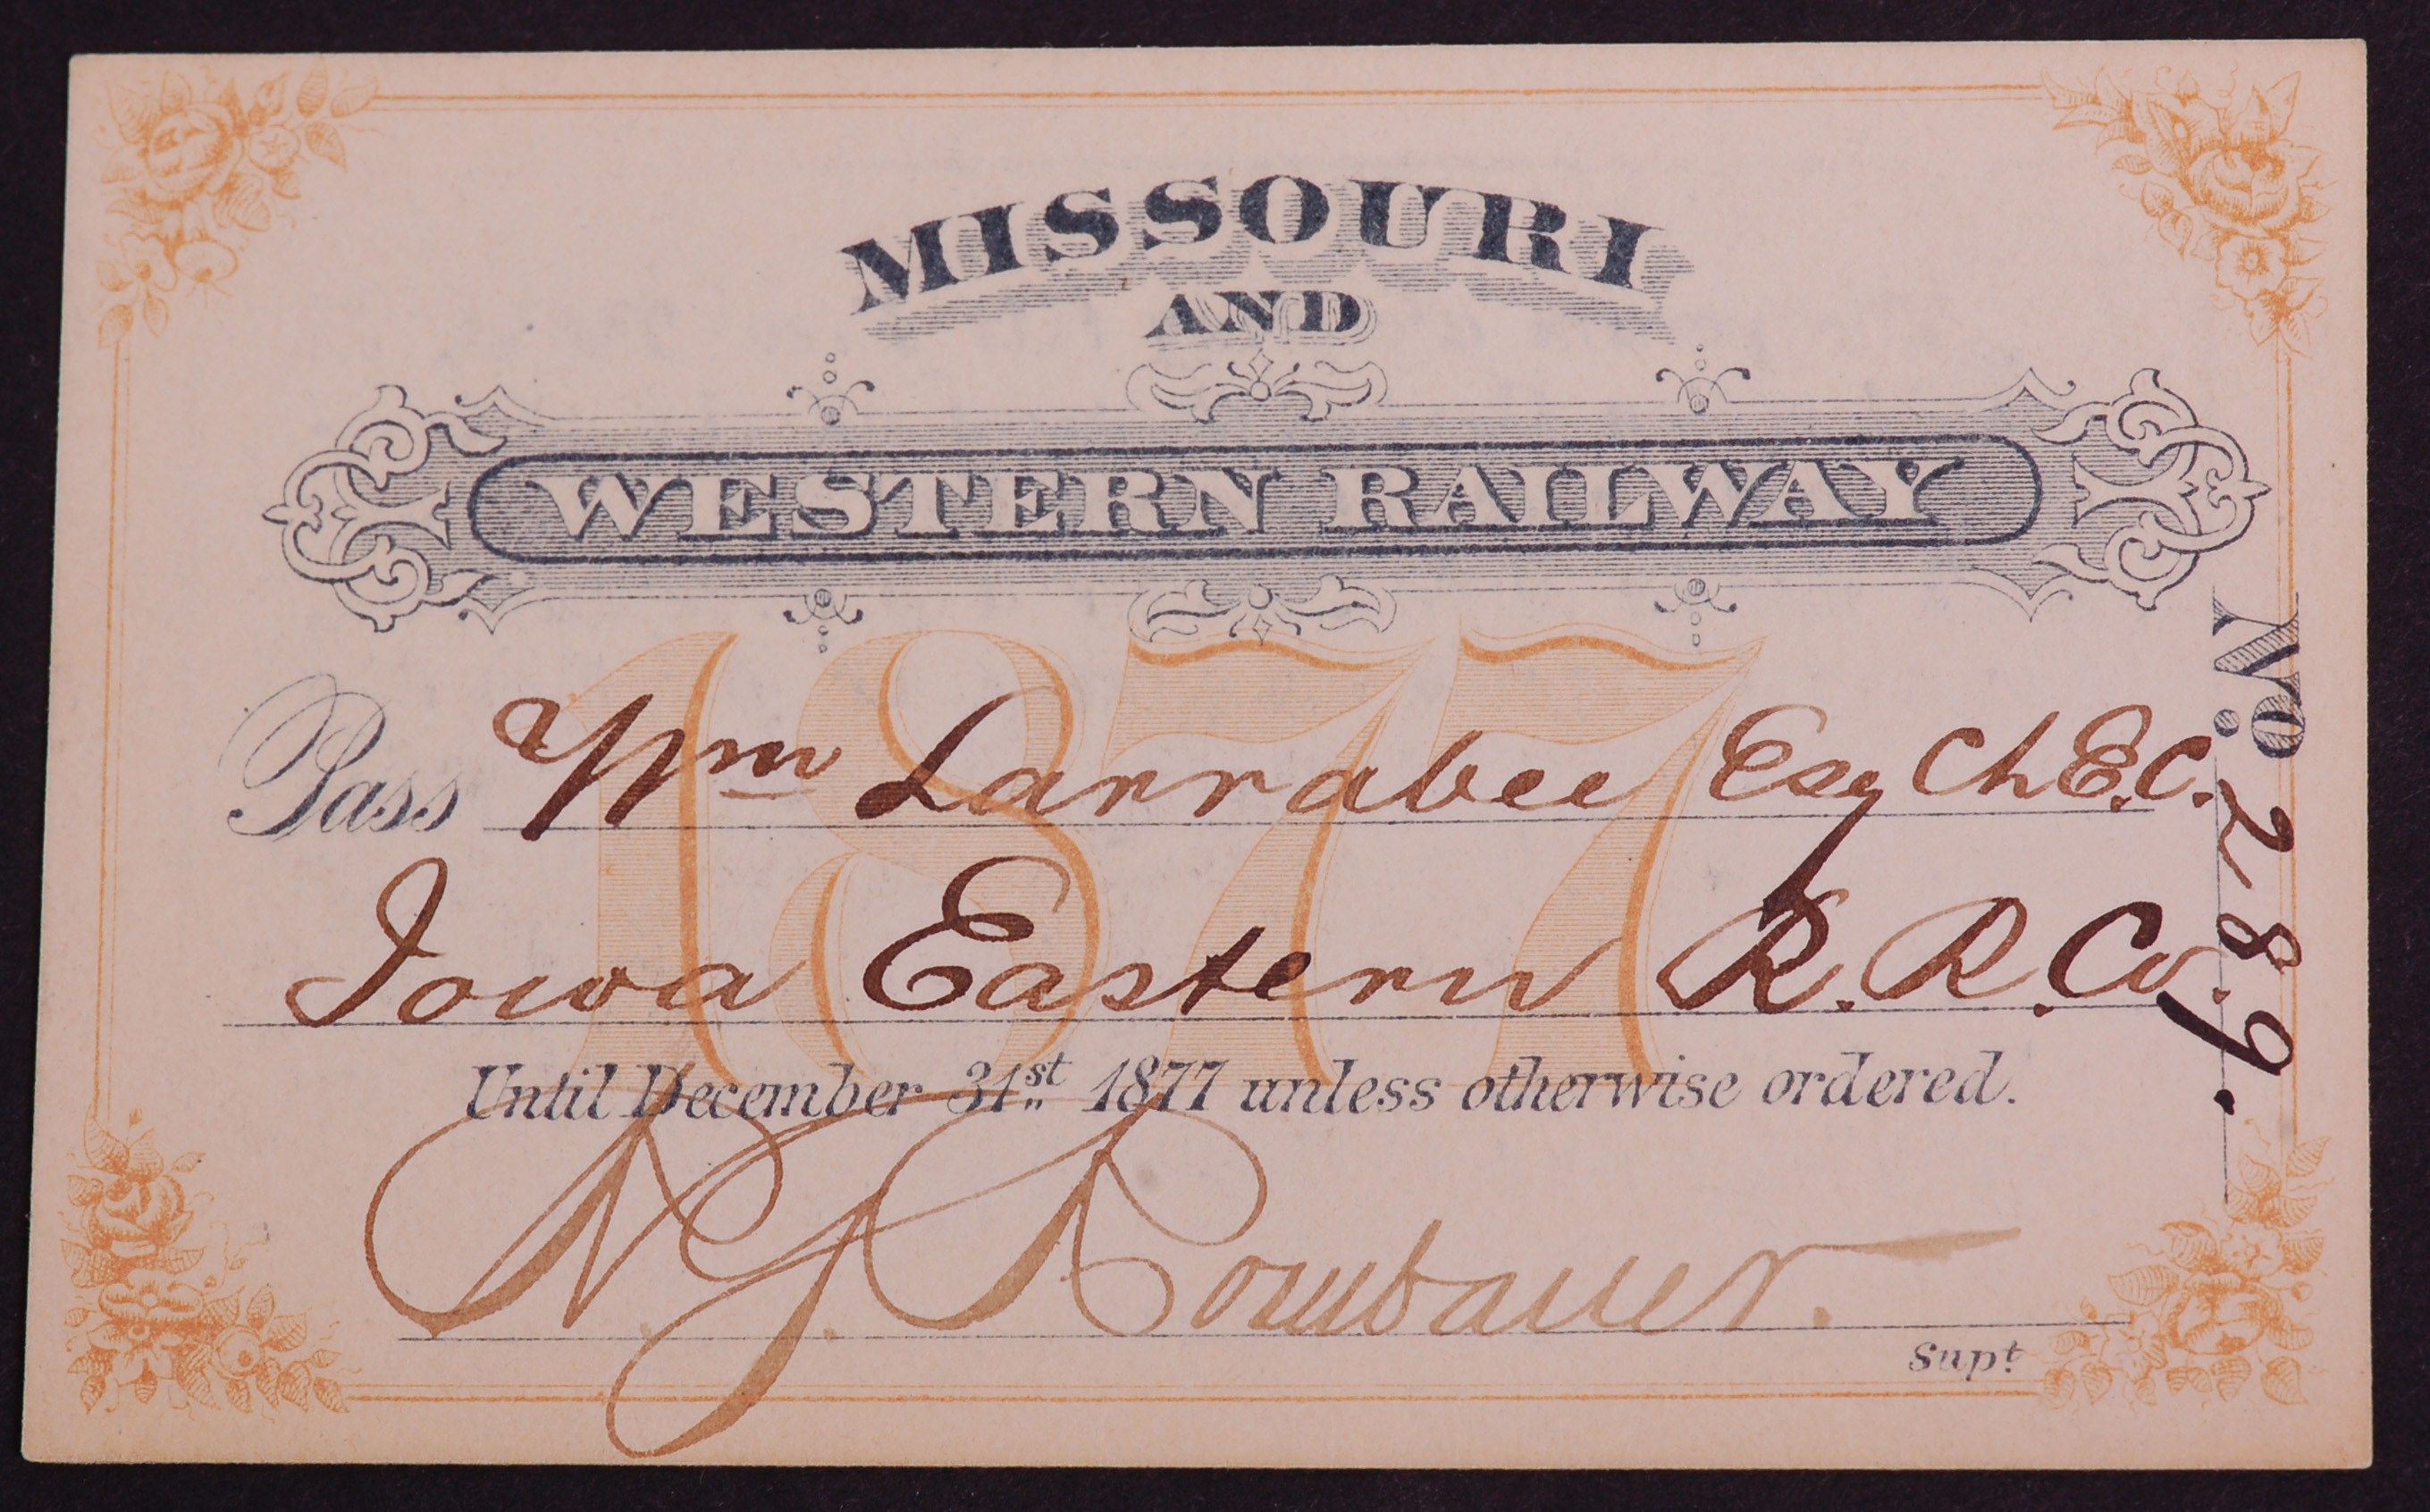 MISSOURI
AND
WESTERN RAILWAY
1877
Pass Wm Larrabee Esq Ch E.C.
Iowa Eastern R. R. Co.
Until December 31st 1877 unless otherwise ordered.
N. J. Rombauer.
Supt
No. 289.